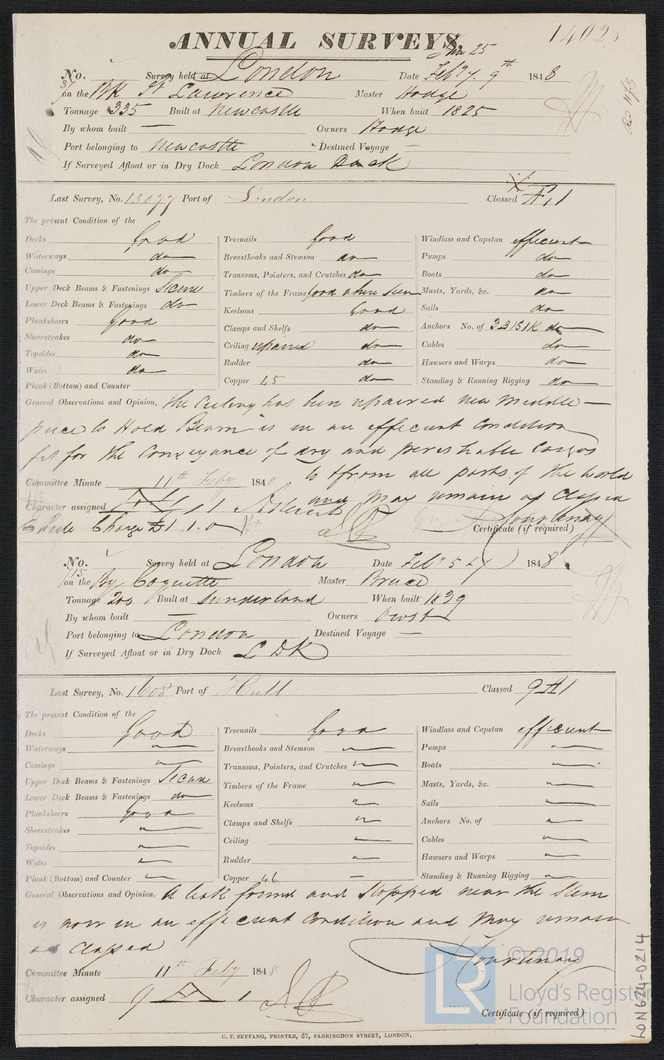 14028
ANNUAL SURVEYS.
Jan 25
No. Survey held at London Date Feby 9th 1848
on the Bk St Lawrence Master Hodge
Tonnage 335 Built at Newcastle When built 1825
By whom built — Owners Hodge
Port belonging to Newcastle Destined Voyage —
If Surveyed Afloat or in Dry Dock London Dock
Last Survey, No. 13077 Port of London Classed Æ1
The present Condition of the
Decks Good Treenails Good Windlass and Capstan efficient
Waterways do Breasthooks and Stemson do Pumps do
Comings do Transoms, Pointers, and Crutches do Boats do
Upper Deck Beams & Fastenings Secure Timbers of the Frame Good where seen Masts, Yards, &c. do
Lower Deck Beams & Fastenings do Keelsons Good Sails do
Planksheers Good Clamps and Shelfs do Anchors No. of 3B1S1K do
Sheerstrakes do Ceiling repaired do Cables do
Topsides do Rudder do Hawsers and Warps do
Wales do Copper 45 do Standing & Running Rigging do
Plank (Bottom) and Counter
General Observations and Opinion, The Ceiling has been repaired new middle
piece to Hold Beam is in an efficient Condition
fit for the Conveyance of dry and perishable Cargos
to & from all parts of the World
Committee Minute 11th Feby 1848
and may remain as Classed
Character assigned Æ 1
Charge £1.1.0 Courtenay
Certificate (if required)
No. 115 Survey held at London Date Feby 5 1848
on the Bg Coquette Master Bruce
Tonnage 200 Built at Sunderland When built 1839
By whom built — Owners
Port belonging to London Destined Voyage —
If Surveyed Afloat or in Dry Dock L DK
Last Survey, No. 1608 Port of Hull Classed 9A1
The present Condition of the
Decks Good Treenails Good Windlass and Capstan efficient
Waterways " Breasthooks and Stemson " Pumps "
Comings " Transoms, Pointers, and Crutches " Boats "
Upper Deck Beams & Fastenings Secure Timbers of the Frame " Masts, Yards, &c. "
Lower Deck Beams & Fastenings do Keelsons " Sails "
Planksheers good Clamps and Shelfs " Anchors No. of "
Sheerstrakes " Ceiling " Cables "
Topsides " Rudder " Hawsers and Warps "
Wales " Copper 46 — Standing & Running Rigging "
Plank (Bottom) and Counter "
General Observations and Opinion, A leak found and Stopped near the Stem
is now in an efficient Condition and may remain
as Classed
Courtenay
Committee Minute 11th Feby 1848
Character assigned 9 A 1
Certificate (if required)
C. F. SEYFANG, PRINTER, 57, FARRINGDON STREET, LONDON.
LR © 2019
Lloyd's Register
Foundation
LON624-0214